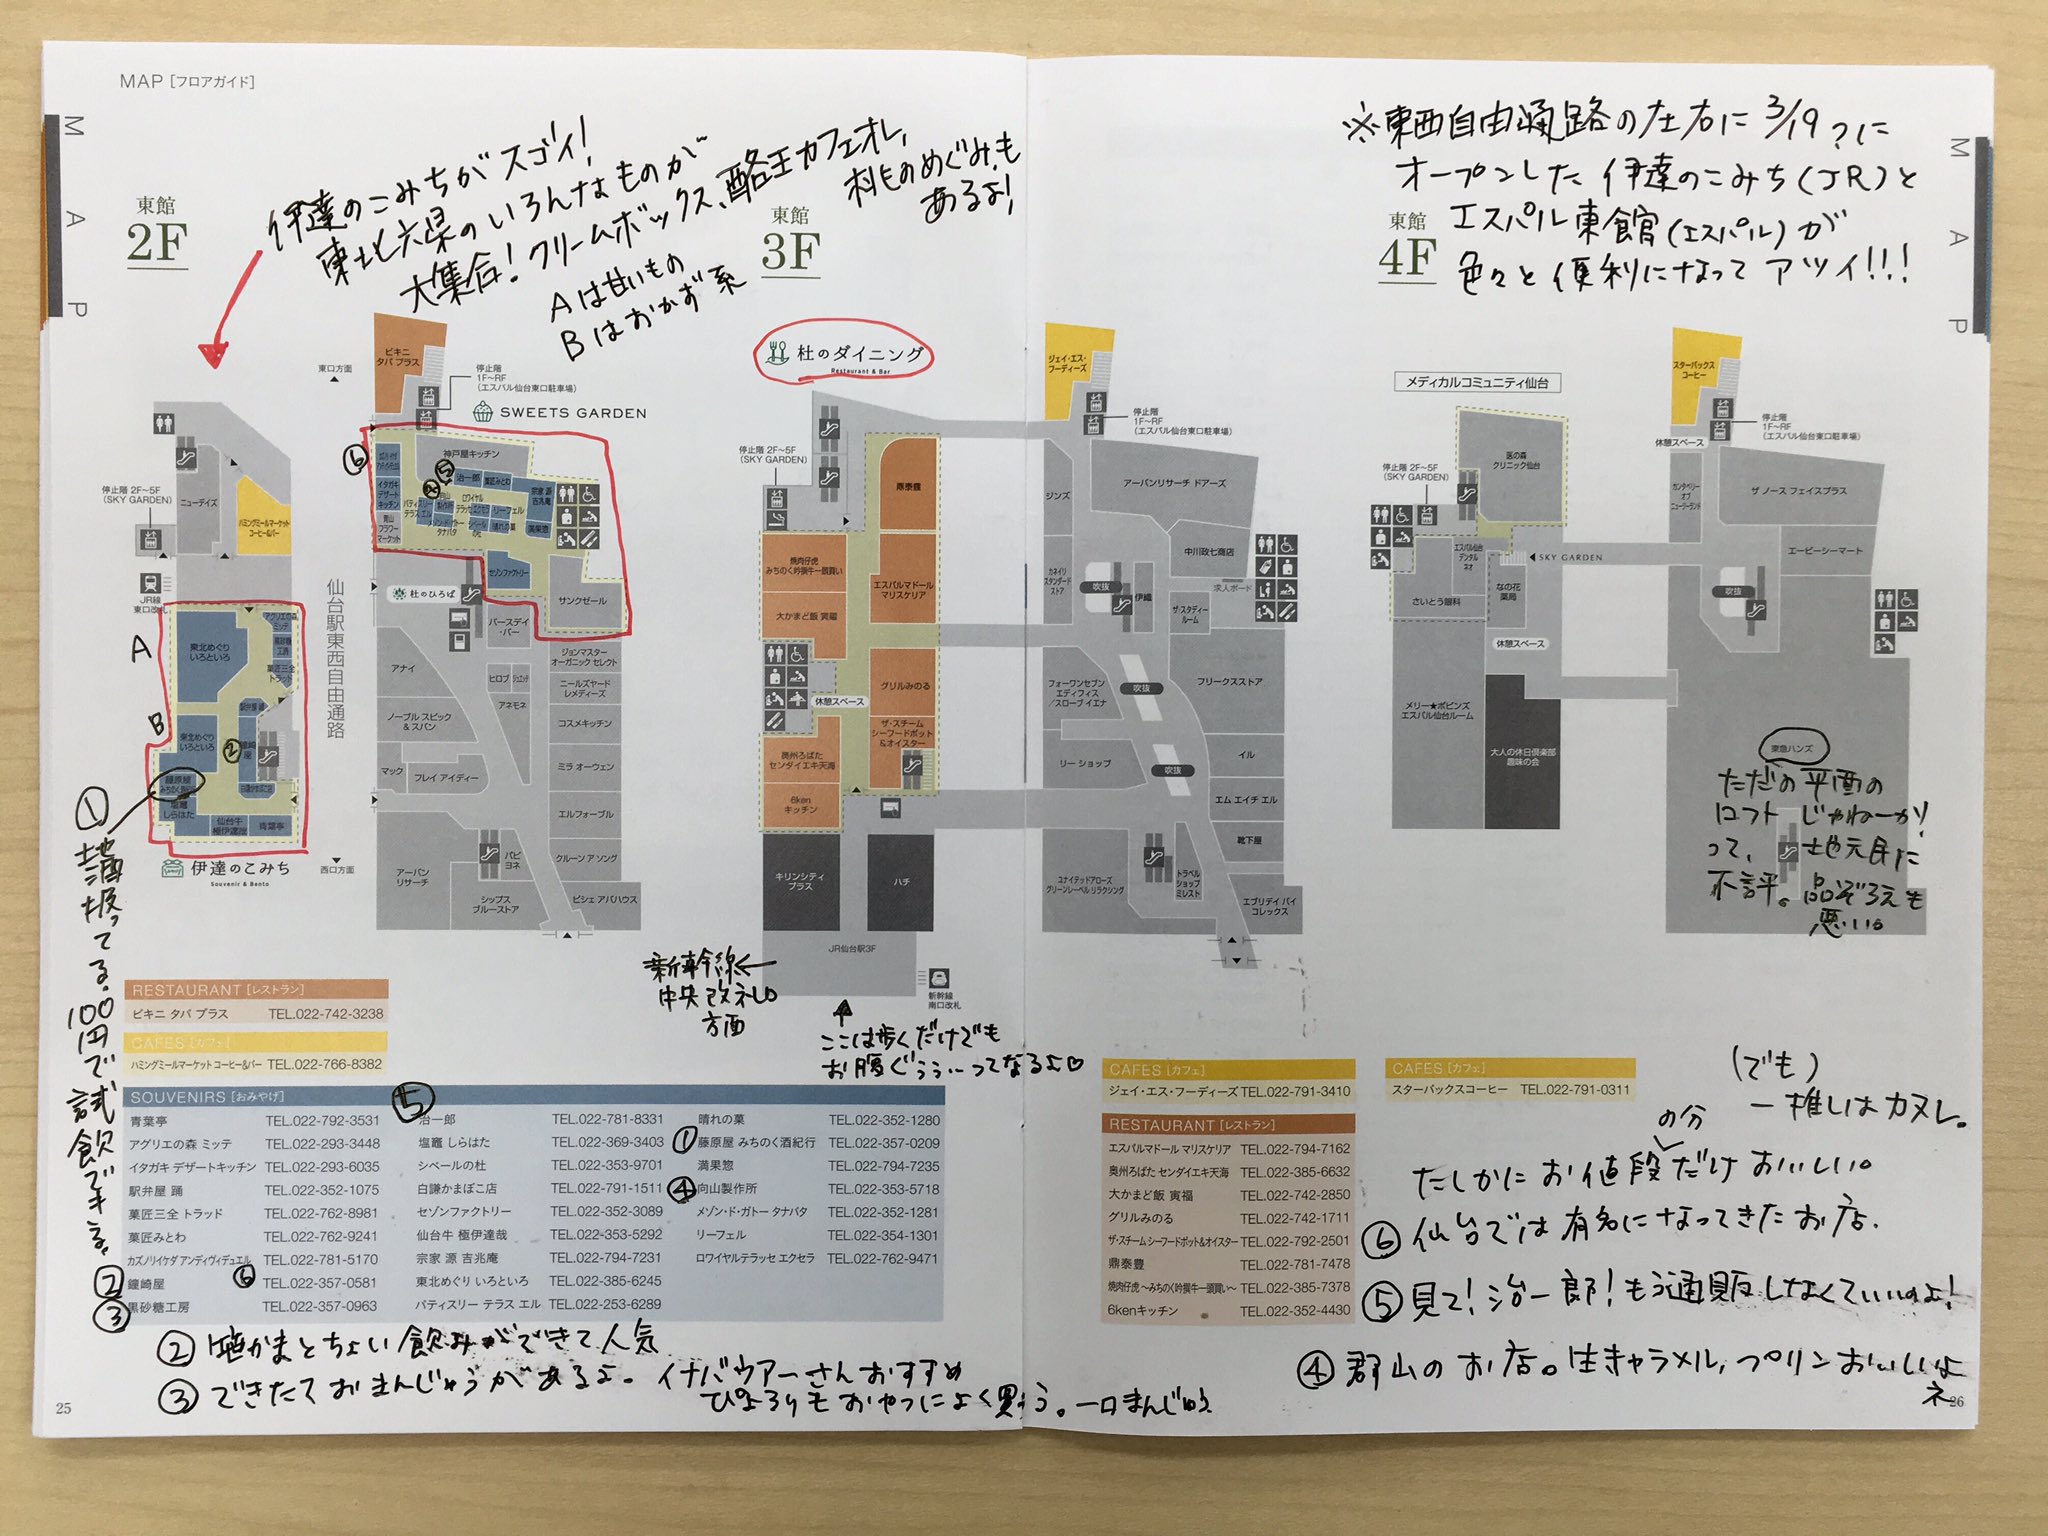 MAP [フロアガイド]
M A P
東館
2F
伊達のこみちがスゴイ!
東北六県のいろんなものが
大集合!クリームボックス、酪王カフェオレ、
桃のめぐみも
あるよ!
Aは甘いもの
Bはおかず系
東館
3F
東館
4F
※東西自由通路の左右に3/19?に
オープンした伊達のこみち(JR)と
エスパル東館(エスパル)が
色々と便利になってアツイ!!!
M A P
停止階 2F~5F
(SKY GARDEN)
ニューデイズ
ハミングミールマーケット
コーヒー&バー
JR線
東口改札
A
東北めぐり
いろといろ
アグリエの森
ミッテ
黒砂糖
工房
菓匠三全
トラッド
駅弁屋 踊
B
東北めぐり
いろといろ
②
鐘崎
屋
藤原屋
みちのく酒紀行
白謙かまぼこ店
塩竈
しらはた
仙台牛
極伊達哉
青葉亭
伊達のこみち
Souvenir & Bento
① 地酒扱ってる。100円で試飲できる。
東口方面
仙台駅東西自由通路
西口方面
ビキニ
タパ プラス
停止階
1F~RF
(エスパル仙台東口駐車場)
SWEETS GARDEN
⑥
神戸屋キッチン
⑤
治一郎
菓匠みとわ
宗家 源
吉兆庵
イタガキ
デザート
キッチン
パティスリー
テラス エル
ロワイヤル
テラッセ エクセラ
リーフェル
青山
フラワー
マーケット
メゾン・ド・ガトー
タナバタ
シベール
の杜
晴れの菓
満果惣
セゾンファクトリー
サンクゼール
杜のひろば
バースデイ
・バー
アナイ
ジョンマスター
オーガニック セレクト
ヒロブ
ジュエッテ
ニールズヤード
レメディーズ
ノーブル スピック
& スパン
アネモネ
コスメキッチン
マック
フレイ アイディー
ミラ オーウェン
エルフォーブル
アーバン
リサーチ
パピ
ヨネ
クルーン ア ソング
シップス
ブルーストア
ビシェ アバハウス
杜のダイニング
Restaurant & Bar
停止階 2F~5F
(SKY GARDEN)
鼎泰豊
焼肉仔虎
みちのく吟撰牛一頭買い
エスパルマドール
マリスケリア
大かまど飯 寅福
グリルみのる
休憩スペース
ザ・スチーム
シーフードポット
&オイスター
奥州ろばた
センダイエキ天海
6ken
キッチン
キリンシティ
プラス
ハチ
JR仙台駅3F
新幹線
南口改札
新幹線←
中央改札口
方面
ここは歩くだけでも
お腹ぐぅぅ~ってなるよ♡
ジェイ・エス・
フーディーズ
停止階
1F~RF
(エスパル仙台東口駐車場)
ジンズ
アーバンリサーチ ドアーズ
カネイリ
スタンダード
ストア
吹抜
伊織
中川政七商店
求人ボード
ザ・スタディー
ルーム
フォーワンセブン
エディフィス
/スローブ イエナ
吹抜
フリークスストア
リー ショップ
吹抜
イル
エム エイチ エル
靴下屋
ユナイテッドアローズ
グリーンレーベル リラクシング
トラベル
ショップ
ミレスト
エブリデイ バイ
コレックス
メディカルコミュニティ仙台
停止階 2F~5F
(SKY GARDEN)
医の森
クリニック仙台
エスパル仙台
デンタル
ネオ
SKY GARDEN
さいとう眼科
なの花
薬局
休憩スペース
メリー★ポピンズ
エスパル仙台ルーム
大人の休日倶楽部
趣味の会
スターバックス
コーヒー
停止階
1F~RF
(エスパル仙台東口駐車場)
休憩スペース
カンタベリー
オブ
ニュージーランド
ザ ノース フェイスプラス
エービーシーマート
吹抜
東急ハンズ
ただの平面の
ロフトじゃねーか!
って、地元民に
不評。品ぞろえも
悪い。
RESTAURANT [レストラン]
ビキニ タパ プラス TEL.022-742-3238
CAFES [カフェ]
ハミングミールマーケット コーヒー&バー TEL.022-766-8382
SOUVENIRS [おみやげ]
青葉亭 TEL.022-792-3531 ⑤ 治一郎 TEL.022-781-8331 晴れの菓 TEL.022-352-1280
アグリエの森 ミッテ TEL.022-293-3448 塩竈 しらはた TEL.022-369-3403 ① 藤原屋 みちのく酒紀行 TEL.022-357-0209
イタガキ デザートキッチン TEL.022-293-6035 シベールの杜 TEL.022-353-9701 満果惣 TEL.022-794-7235
駅弁屋 踊 TEL.022-352-1075 白謙かまぼこ店 TEL.022-791-1511 ④ 向山製作所 TEL.022-353-5718
菓匠三全 トラッド TEL.022-762-8981 セゾンファクトリー TEL.022-352-3089 メゾン・ド・ガトー タナバタ TEL.022-352-1281
菓匠みとわ TEL.022-762-9241 仙台牛 極伊達哉 TEL.022-353-5292 リーフェル TEL.022-354-1301
カズノリイケダ アンディヴィデュエル TEL.022-781-5170 宗家 源 吉兆庵 TEL.022-794-7231 ロワイヤルテラッセ エクセラ TEL.022-762-9471
② 鐘崎屋 ⑥ TEL.022-357-0581 東北めぐり いろといろ TEL.022-385-6245
③ 黒砂糖工房 TEL.022-357-0963 パティスリー テラス エル TEL.022-253-6289
② 笹かまとちょい飲みができて人気
③ できたておまんじゅうがあるよ。イナバウアーさんおすすめ
ぴよろりもおやつによく買う。一口まんじゅう
25
CAFES [カフェ]
ジェイ・エス・フーディーズ TEL.022-791-3410
RESTAURANT [レストラン]
エスパルマドール マリスケリア TEL.022-794-7162
奥州ろばた センダイエキ天海 TEL.022-385-6632
大かまど飯 寅福 TEL.022-742-2850
グリルみのる TEL.022-742-1711
ザ・スチーム シーフードポット&オイスター TEL.022-792-2501
鼎泰豊 TEL.022-781-7478
焼肉仔虎 ~みちのく吟撰牛一頭買い~ TEL.022-385-7378
6kenキッチン TEL.022-352-4430
CAFES [カフェ]
スターバックスコーヒー TEL.022-791-0311
(でも)
一推しはカヌレ。
の分
たしかにお値段だけおいしい。
⑥ 仙台では有名になってきたお店。
⑤ 見て!治一郎!もう通販しなくていいのよ!
④ 郡山のお店。生キャラメル、プリンおいしいよ
ネ
26